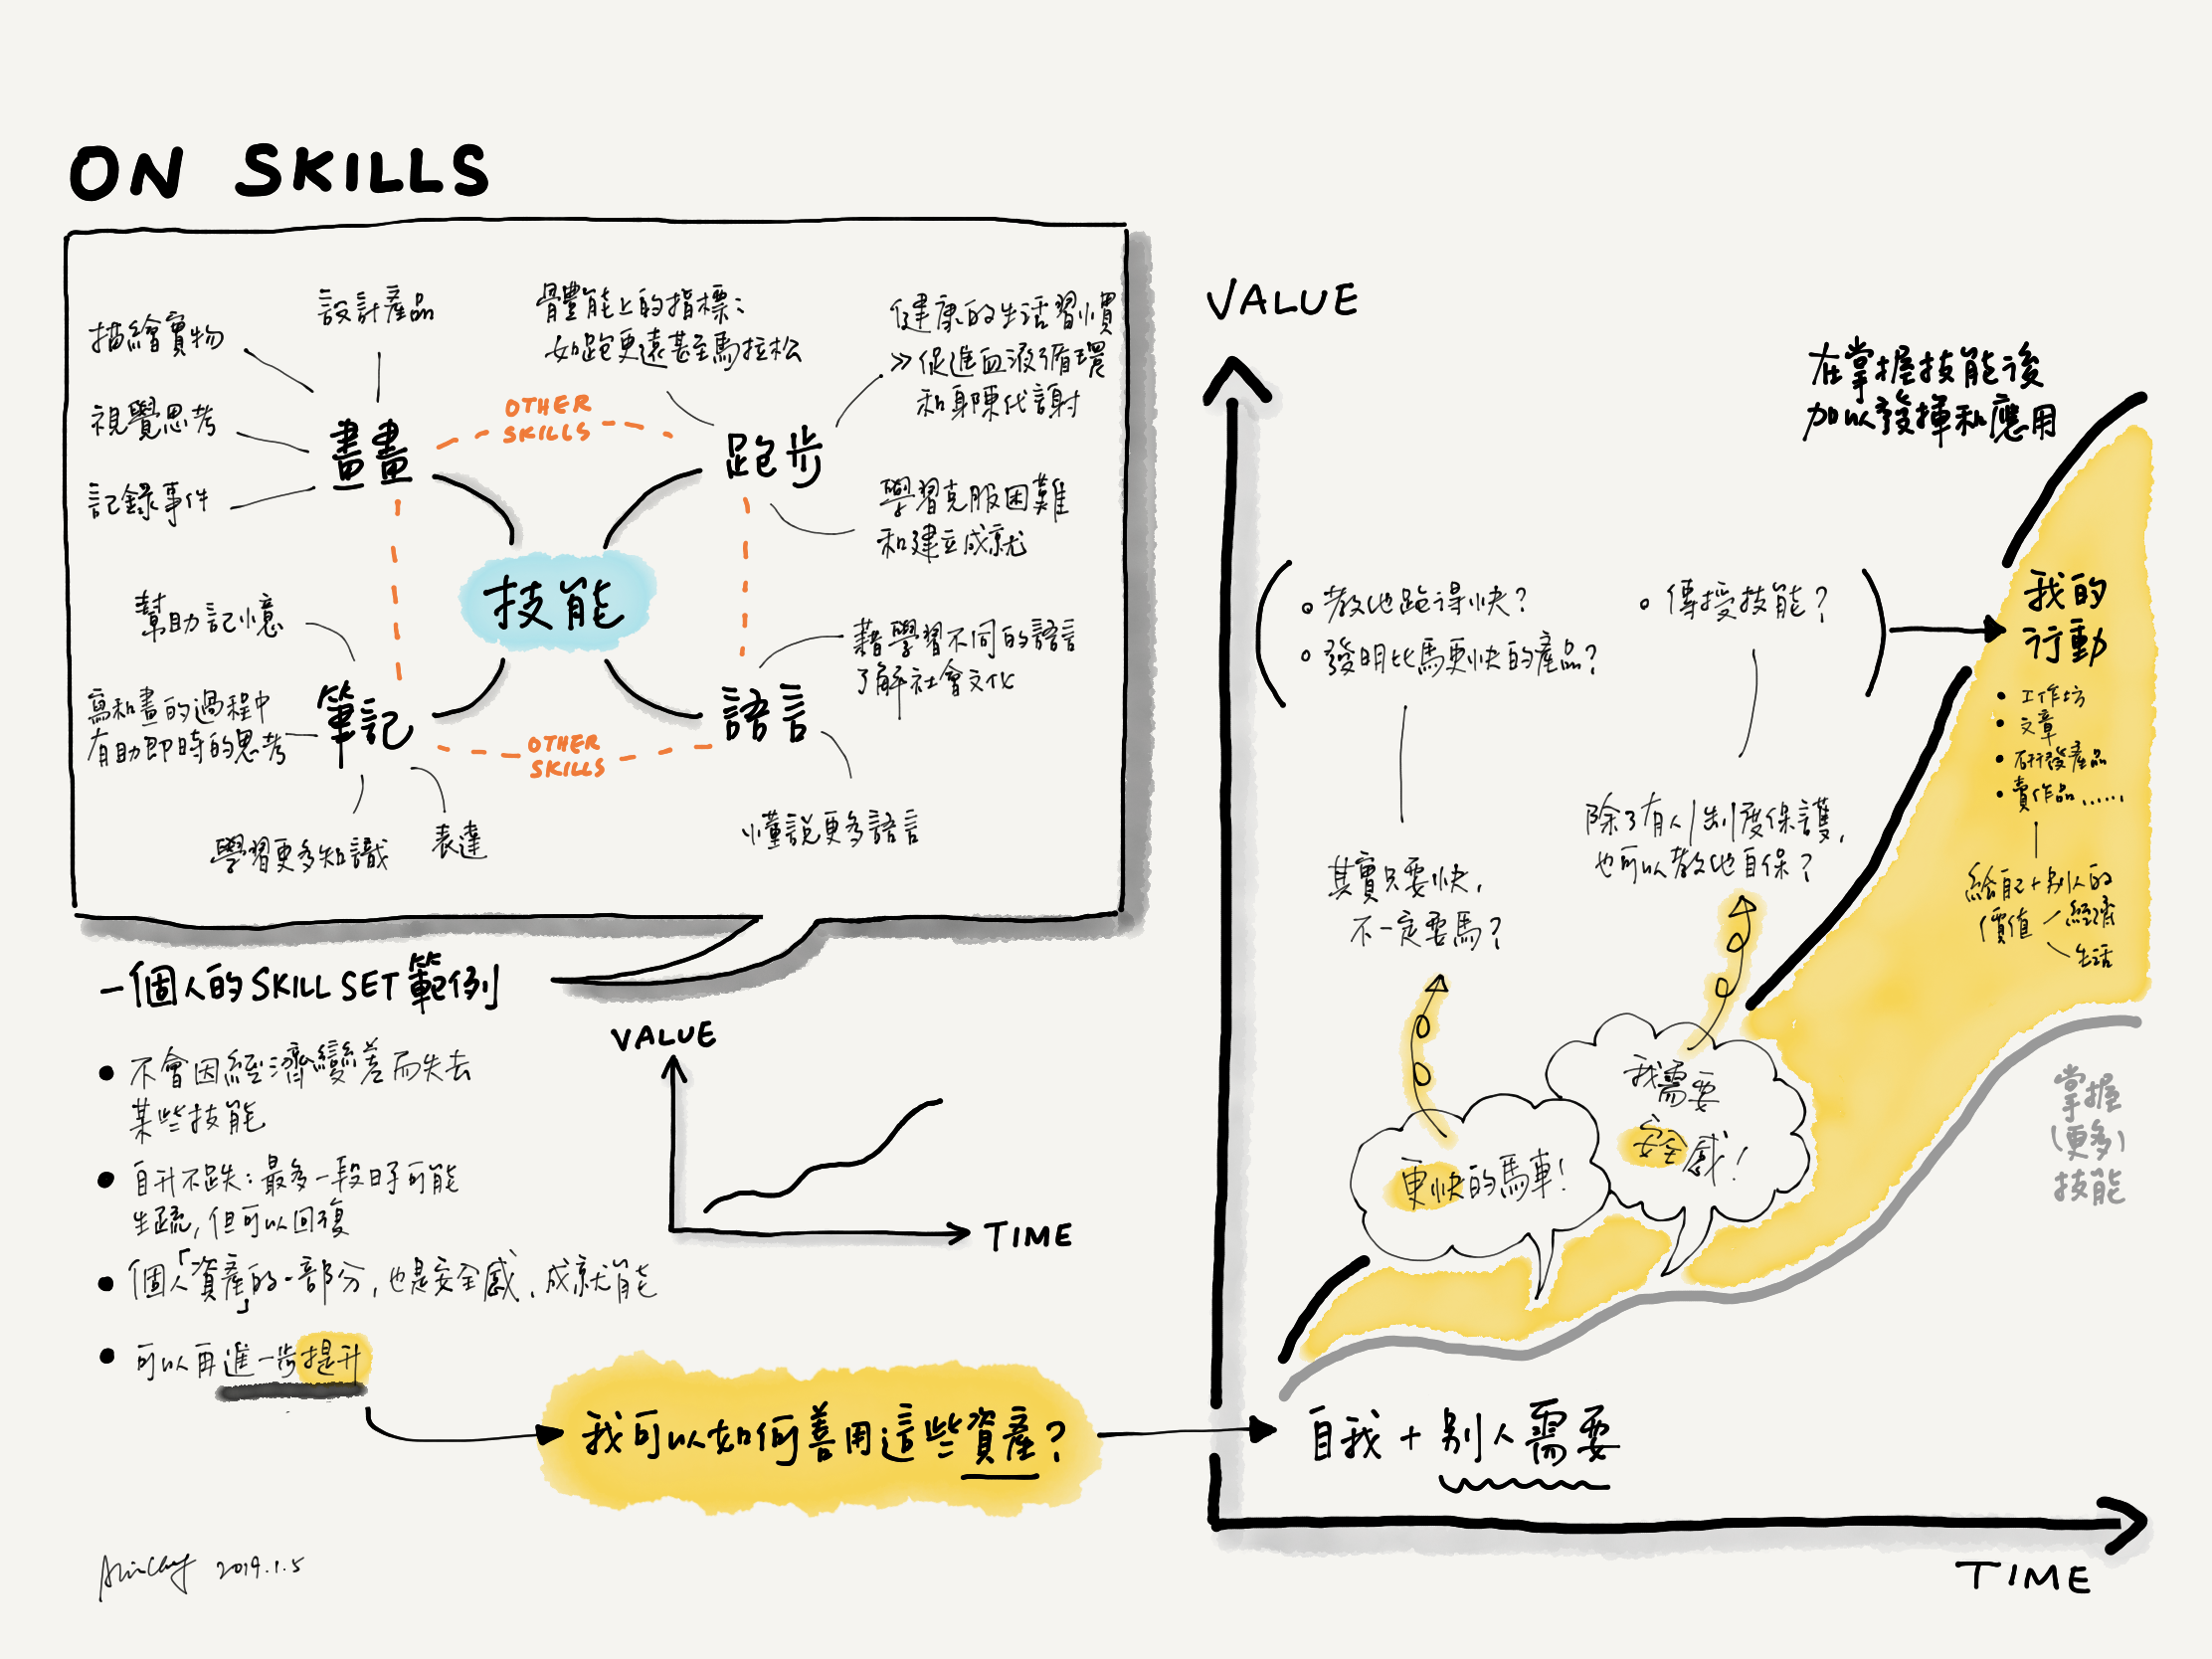 ON SKILLS
描繪實物
設計產品
視覺思考
記錄事件
畫畫
OTHER
SKILLS
體能上的指標：
如跑更遠甚至馬拉松
健康的生活習慣
» 促進血液循環
和身陳代謝
跑步
學習克服困難
和建立成就
技能
幫助記憶
寫和畫的過程中
有助即時的思考
筆記
學習更多知識
表達
OTHER
SKILLS
藉學習不同的語言
了解社會文化
語言
懂說更多語言
一個人的 SKILL SET 範例
• 不會因經濟變差而失去
某些技能
• 自升不跌：最多一段日子可能
生疏，但可以回復
• 個人「資產」的一部分，也是安全感、成就能
• 可以再進一步提升
VALUE
TIME
我可以如何善用這些資產？
VALUE
在掌握技能後
加以發揮和應用
教他跑得快？
發明比馬更快的產品？
傳授技能？
我的
行動
• 工作坊
• 文章
• 研發產品
• 賣作品……
給自己+別人的
價值
經濟
生活
其實只要快，
不一定要馬？
除了有人/制度保護，
也可以教他自保？
更快的馬車！
我需要
安全感！
掌握
(更多)
技能
自我 + 別人需要
TIME
2019.1.5